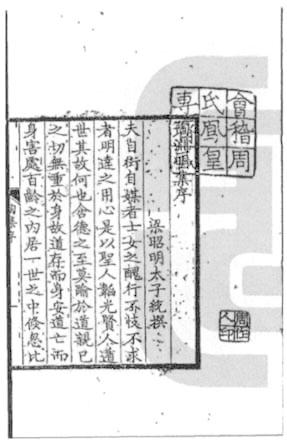 會稽周
氏鳳皇
專
陶淵明集序
梁昭明太子統撰
夫自衒自媒者士女之醜行不忮不求
者明達之用心是以聖人韜光賢人遁
世其故何也含德之至莫踰於道親已
之切無重於身故道存而身安道亡而
身害處百齡之內居一世之中倏忽比
周作
人印